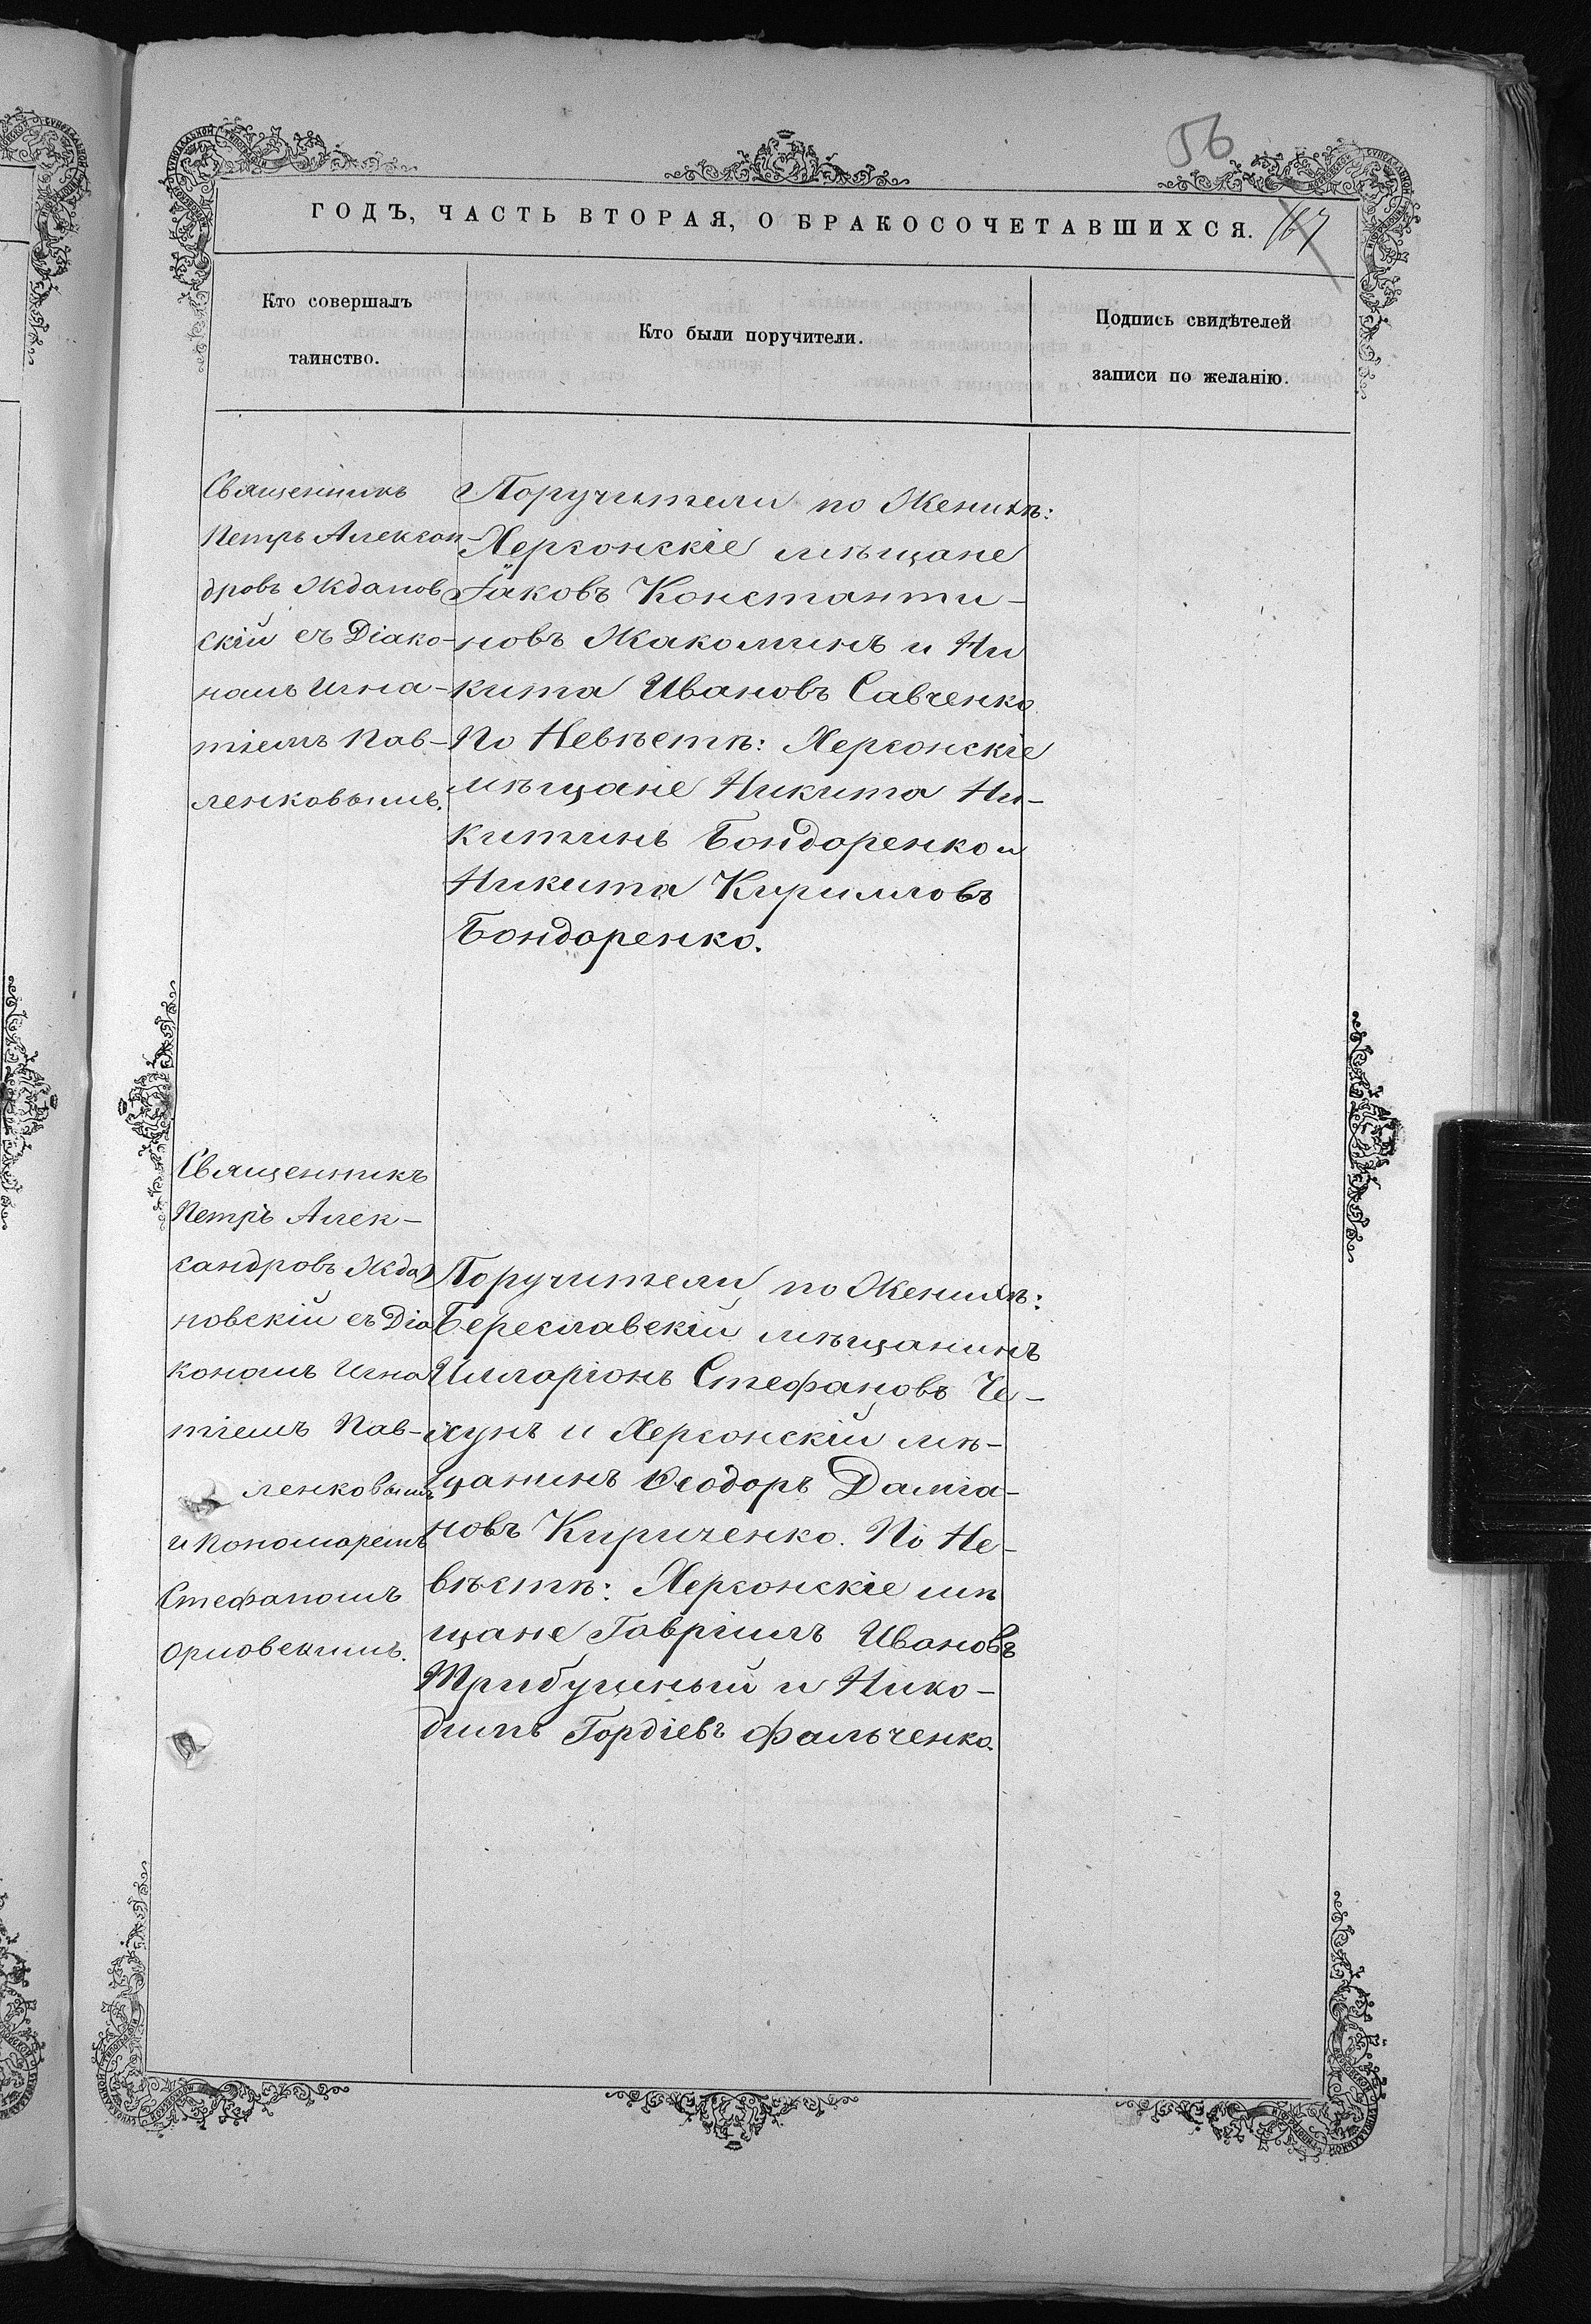 56
ГОДЪ, ЧАСТЬ ВТОРАЯ, О БРАКОСОЧЕТАВШИХСЯ.
167
Кто совершалъ
таинство.
Кто были поручители.
Подпись свидѣтелей
записи по желанію.
Священникъ
Петръ Алексан
дровъ Ждапов
скій съ Діако-
номъ Игна-
тіемъ Пав-
ленковымъ.
Поручители по Женихѣ:
Херсонскіе мѣщане
Іаковъ Константи-
новъ Жакоминъ и Ни
кита Ивановъ Савченко
По Невѣстѣ: Херсонскіе
мѣщане Никита Ни-
китинъ Бондоренко и
Никита Кирилловъ
Бондоренко.
Священникъ
Петръ Алек-
сандровъ Жда
новскій съ Діа
кономъ Игна
тіемъ Пав-
ленковымъ
и Пономаремъ
Стефаномъ
Орловскимъ.
Поручители по Женихѣ:
Береславскій мѣщанинъ
Илларіонъ Стефановъ Че-
хунъ и Херсонскій мѣ-
щанинъ Ѳеодоръ Даміа-
новъ Кириченко. По Не-
вѣстѣ: Херсонскіе мѣ
щане Гавріилъ Ивановъ
Трибушный и Нико-
димъ Гордіевъ Фальченко.